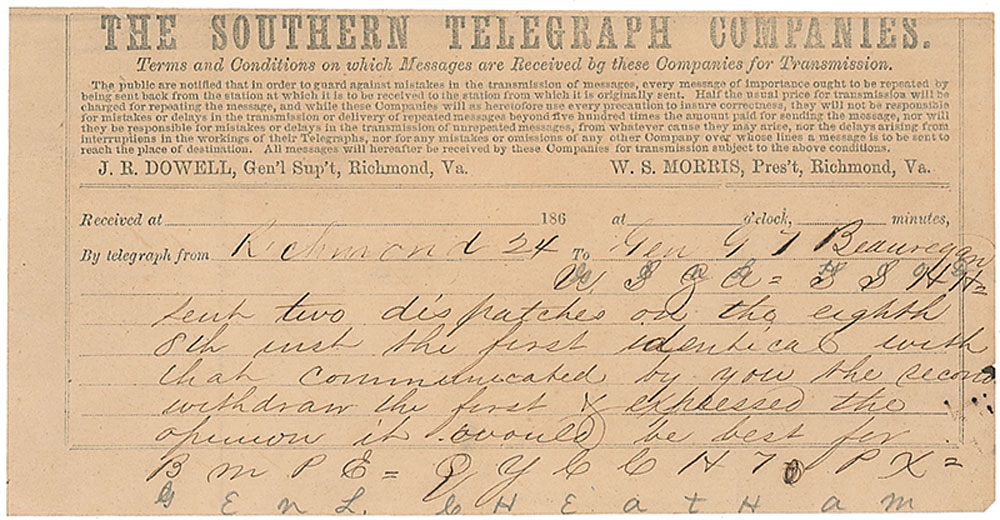 THE SOUTHERN TELEGRAPH COMPANIES.
Terms and Conditions on which Messages are Received by these Companies for Transmission.
The public are notified that in order to guard against mistakes in the transmission of messages, every message of importance ought to be repeated by
being sent back from the station at which it is to be received to the station from which it is originally sent. Half the usual price for transmission will be
charged for repeating the message, and while these Companies will as heretofore use every precaution to insure correctness, they will not be responsible
for mistakes or delays in the transmission or delivery of repeated messages beyond five hundred times the amount paid for sending the message, nor will
they be responsible for mistakes or delays in the transmission of unrepeated messages, from whatever cause they may arise, nor the delays arising from
interruptions in the workings of their Telegraphs, nor for any mistakes or omissions of any other Company over whose lines a message is to be sent to
reach the place of destination. All messages will hereafter be received by these Companies for transmission subject to the above conditions.
J. R. DOWELL, Gen'l Sup't, Richmond, Va. W. S. MORRIS, Pres't, Richmond, Va.
Received at 186 at o'clock, minutes,
By telegraph from Richmond 24 To Gen G T Beauregard
sent two dispatches on the eighth
8th inst the first identical with
that communicated by you the second
withdraw the first & expressed the
opinion it would be best for
B M P E = Q Y C C H T P X =
G E N L. C H E A T H A M